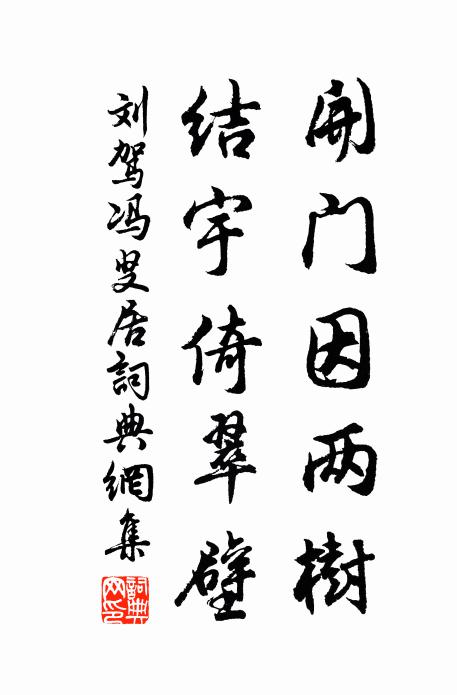 開门因两樹
结宇倚翠壁
刘驾冯叟居詞典網集
詞典网印